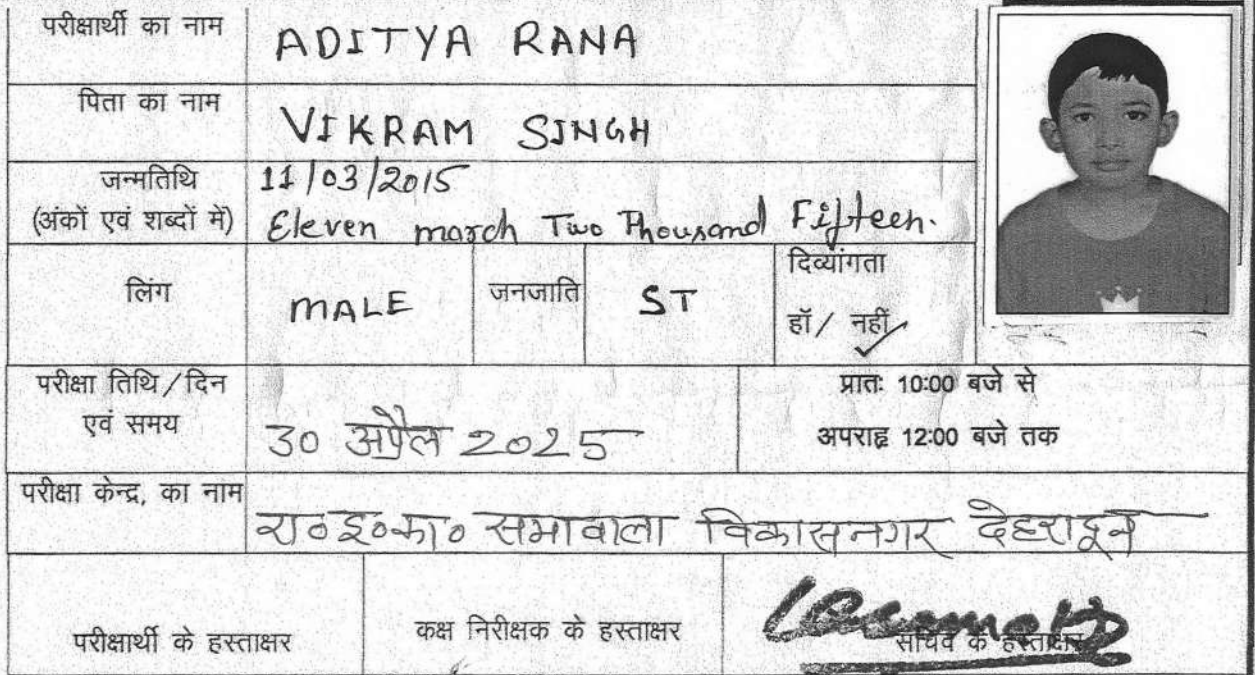 परीक्षार्थी का नाम
ADITYA RANA
पिता का नाम
VIKRAM SINGH
जन्मतिथि
(अंकों एवं शब्दों में)
11/03/2015
Eleven march Two Thousand Fifteen.
लिंग
MALE
जनजाति
ST
दिव्यांगता
हॉ/ नहीं
परीक्षा तिथि/दिन
एवं समय
30 अप्रैल 2025
प्रातः 10:00 बजे से
अपराह्न 12:00 बजे तक
परीक्षा केन्द्र, का नाम
रा०इ०का० सभावाला विकासनगर देहरादून
परीक्षार्थी के हस्ताक्षर
कक्ष निरीक्षक के हस्ताक्षर
सचिव के हस्ताक्षर